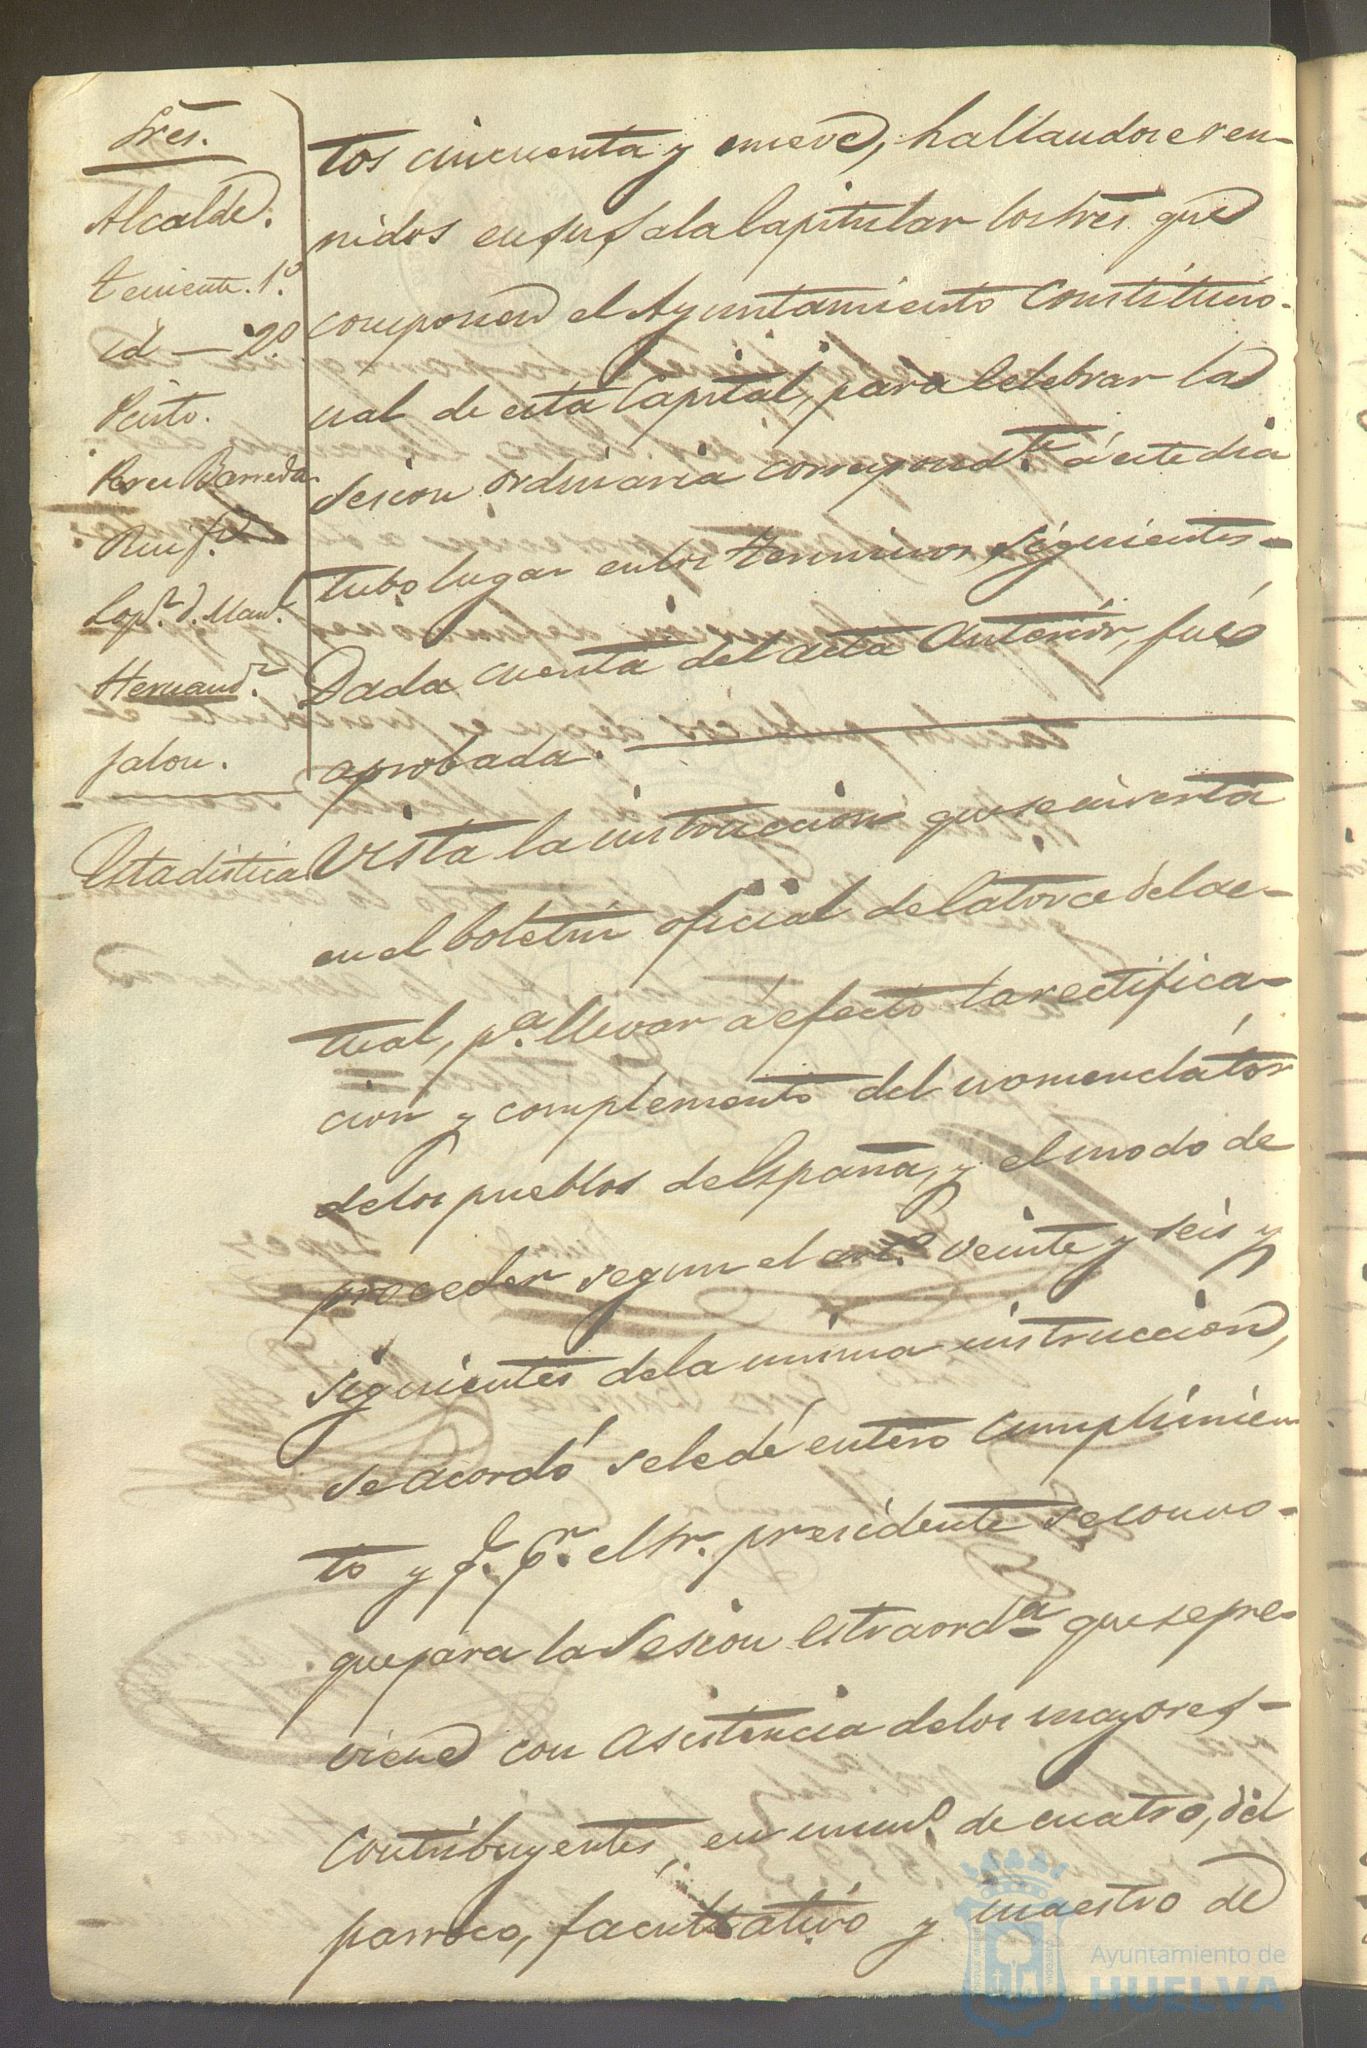 Sres.
Alcalde.
teniente. 1.º
id — 2.º
Pinto.
Perez Barreda
Ruif.z
Lop.z d. Man.l
Hernand.z
jalon.
tos cincuenta y nueve, hallandose reu-
nidos en su sala Capitular los Sres. que
componen el Ayuntamiento Constitucio-
nal de esta Capital, para celebrar la
sesion ordinaria correspond.te á este dia
tubo lugar en los terminos siguientes-
Dada cuenta del acta anterior, fué
aprobada.
Estadistica
Vista la instruccion que se inserta
en el boletin oficial del catorce del ac-
tual, p.a llevar á efecto la rectifica-
cion y complemento del nomenclator
de los pueblos de España, y el modo de
proceder segun el art.o veinte y seis y
siguientes de la misma instruccion,
se acordó se le dé entero cumplimien
to y q.e p.r el Sr. presidente se convo-
que para la Sesion estraord.a que se pre-
viene con asistencia de los mayores-
Contribuyentes en num.o de cuatro, del
parroco, facultativo y maestro de
Ayuntamiento de
HUELVA